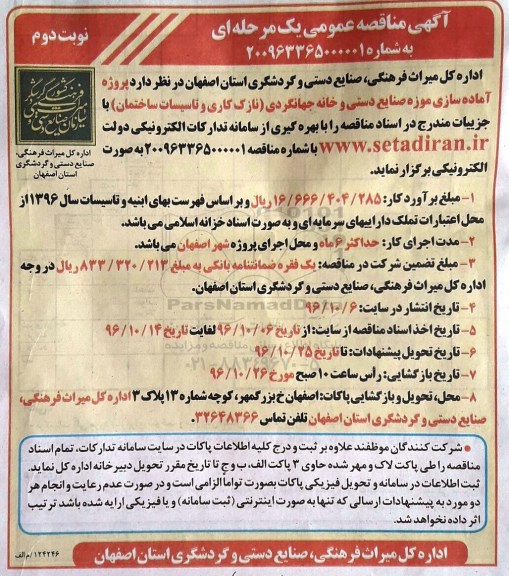 آگهی مناقصه عمومی یک مرحله ای
به شماره ۲۰۰۹۶۳۳۶۵۰۰۰۰۰۱
نوبت دوم
اداره کل میراث فرهنگی،
صنایع دستی و گردشگری
استان اصفهان
اداره کل میراث فرهنگی، صنایع دستی و گردشگری استان اصفهان در نظر دارد پروژه
آماده سازی موزه صنایع دستی و خانه جهانگردی (نازک کاری و تاسیسات ساختمان) با
جزییات مندرج در اسناد مناقصه را با بهره گیری از سامانه تدارکات الکترونیکی دولت
www.setadiran.ir با شماره مناقصه ۲۰۰۹۶۳۳۶۵۰۰۰۰۰۱ به صورت
الکترونیکی برگزار نماید.
۱- مبلغ برآورد کار: ۱۶/۶۶۶/۴۰۴/۲۸۵ ریال و بر اساس فهرست بهای ابنیه و تاسیسات سال ۱۳۹۶ از
محل اعتبارات تملک داراییهای سرمایه ای و به صورت اسناد خزانه اسلامی می باشد.
۲- مدت اجرای کار: حداکثر ۶ ماه و محل اجرای پروژه شهر اصفهان می باشد.
۳- مبلغ تضمین شرکت در مناقصه: یک فقره ضمانتنامه بانکی به مبلغ ۸۳۳/۳۲۰/۲۱۳ ریال در وجه
اداره کل میراث فرهنگی، صنایع دستی و گردشگری استان اصفهان.
۴- تاریخ انتشار در سایت: ۹۶/۱۰/۶
۵- تاریخ اخذ اسناد مناقصه از سایت: از تاریخ ۹۶/۱۰/۰۶ لغایت تاریخ ۹۶/۱۰/۱۴
۶- تاریخ تحویل پیشنهادات: تا تاریخ ۹۶/۱۰/۲۵
۷- تاریخ بازگشایی: رأس ساعت ۱۰ صبح مورخ ۹۶/۱۰/۲۶
۸- محل، تحویل و بازگشایی پاکات: اصفهان خ بزرگمهر، کوچه شماره ۱۳ پلاک ۳ اداره کل میراث فرهنگی،
صنایع دستی و گردشگری استان اصفهان تلفن تماس ۳۲۶۴۸۳۶۶.
● شرکت کنندگان موظفند علاوه بر ثبت و درج کلیه اطلاعات پاکات در سایت سامانه تدارکات، تمام اسناد
مناقصه را طی پاکت لاک و مهر شده حاوی ۳ پاکت الف، ب و ج تا تاریخ مقرر تحویل دبیرخانه اداره کل نماید.
ثبت اطلاعات در سامانه و تحویل فیزیکی پاکات بصورت تواما الزامی است و در صورت عدم رعایت و انجام هر
دو مورد به پیشنهادات ارسالی که تنها به صورت اینترنتی (ثبت سامانه) و یا فیزیکی ارایه شده باشد ترتیب
اثر داده نخواهد شد.
اداره کل میراث فرهنگی، صنایع دستی و گردشگری استان اصفهان
۱۲۴۲۴۶/م الف